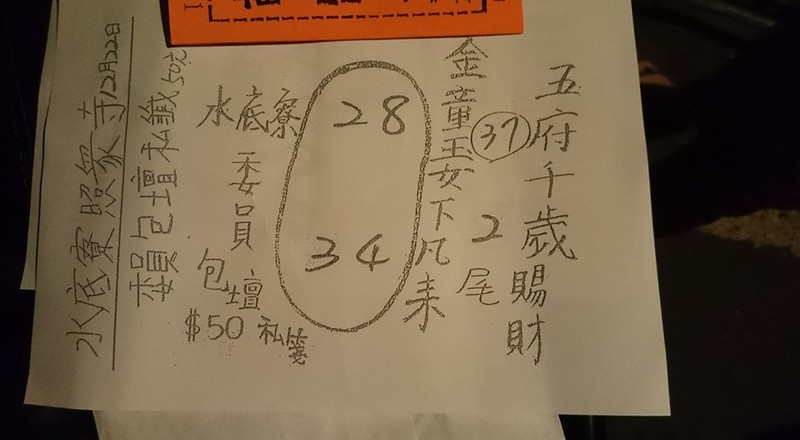 五府千歲賜財
37
2尾
金童玉女下凡來
28
34
水底寮
委員
包壇
$50 私箋
委員包壇私籤50元
水底寮照衆寺12月22日